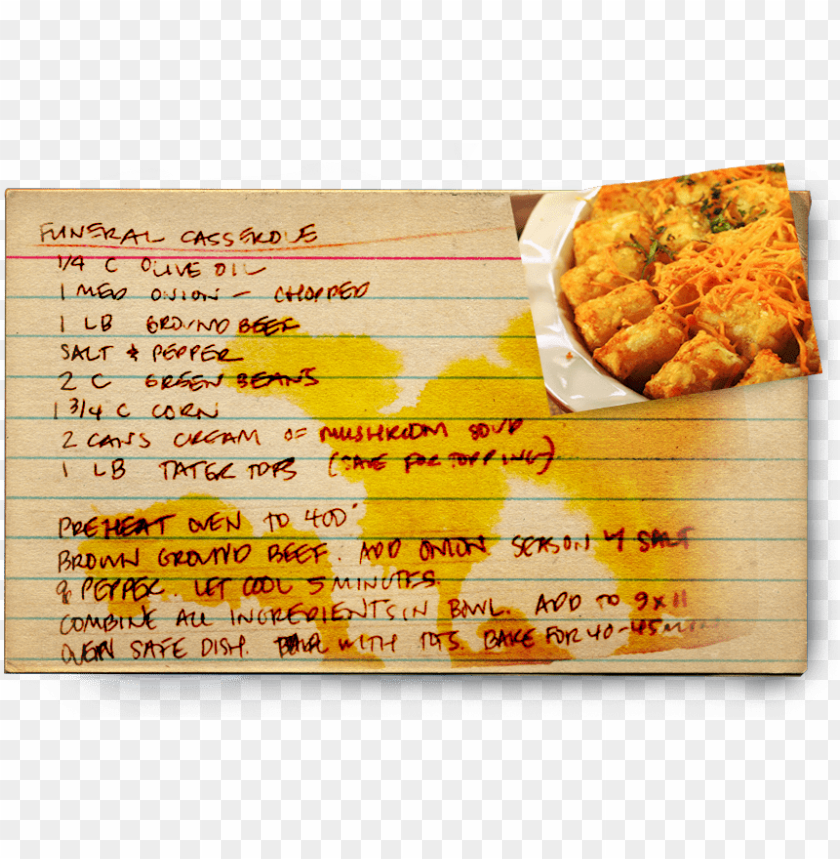 FUNERAL CASSEROLE
1/4 C OLIVE OIL
1 MED ONION - CHOPPED
1 LB GROUND BEEF
SALT & PEPPER
2 C GREEN BEANS
1 3/4 C CORN
2 CANS CREAM OF MUSHROOM SOUP
1 LB TATER TOTS (SAVE FOR TOPPING)
PREHEAT OVEN TO 400°
BROWN GROUND BEEF. ADD ONION SEASON W SALT
& PEPPER. LET COOL 5 MINUTES.
COMBINE ALL INGREDIENTS IN BOWL. ADD TO 9x11
OVEN SAFE DISH. WITH TOTS. BAKE FOR 40-45 MIN